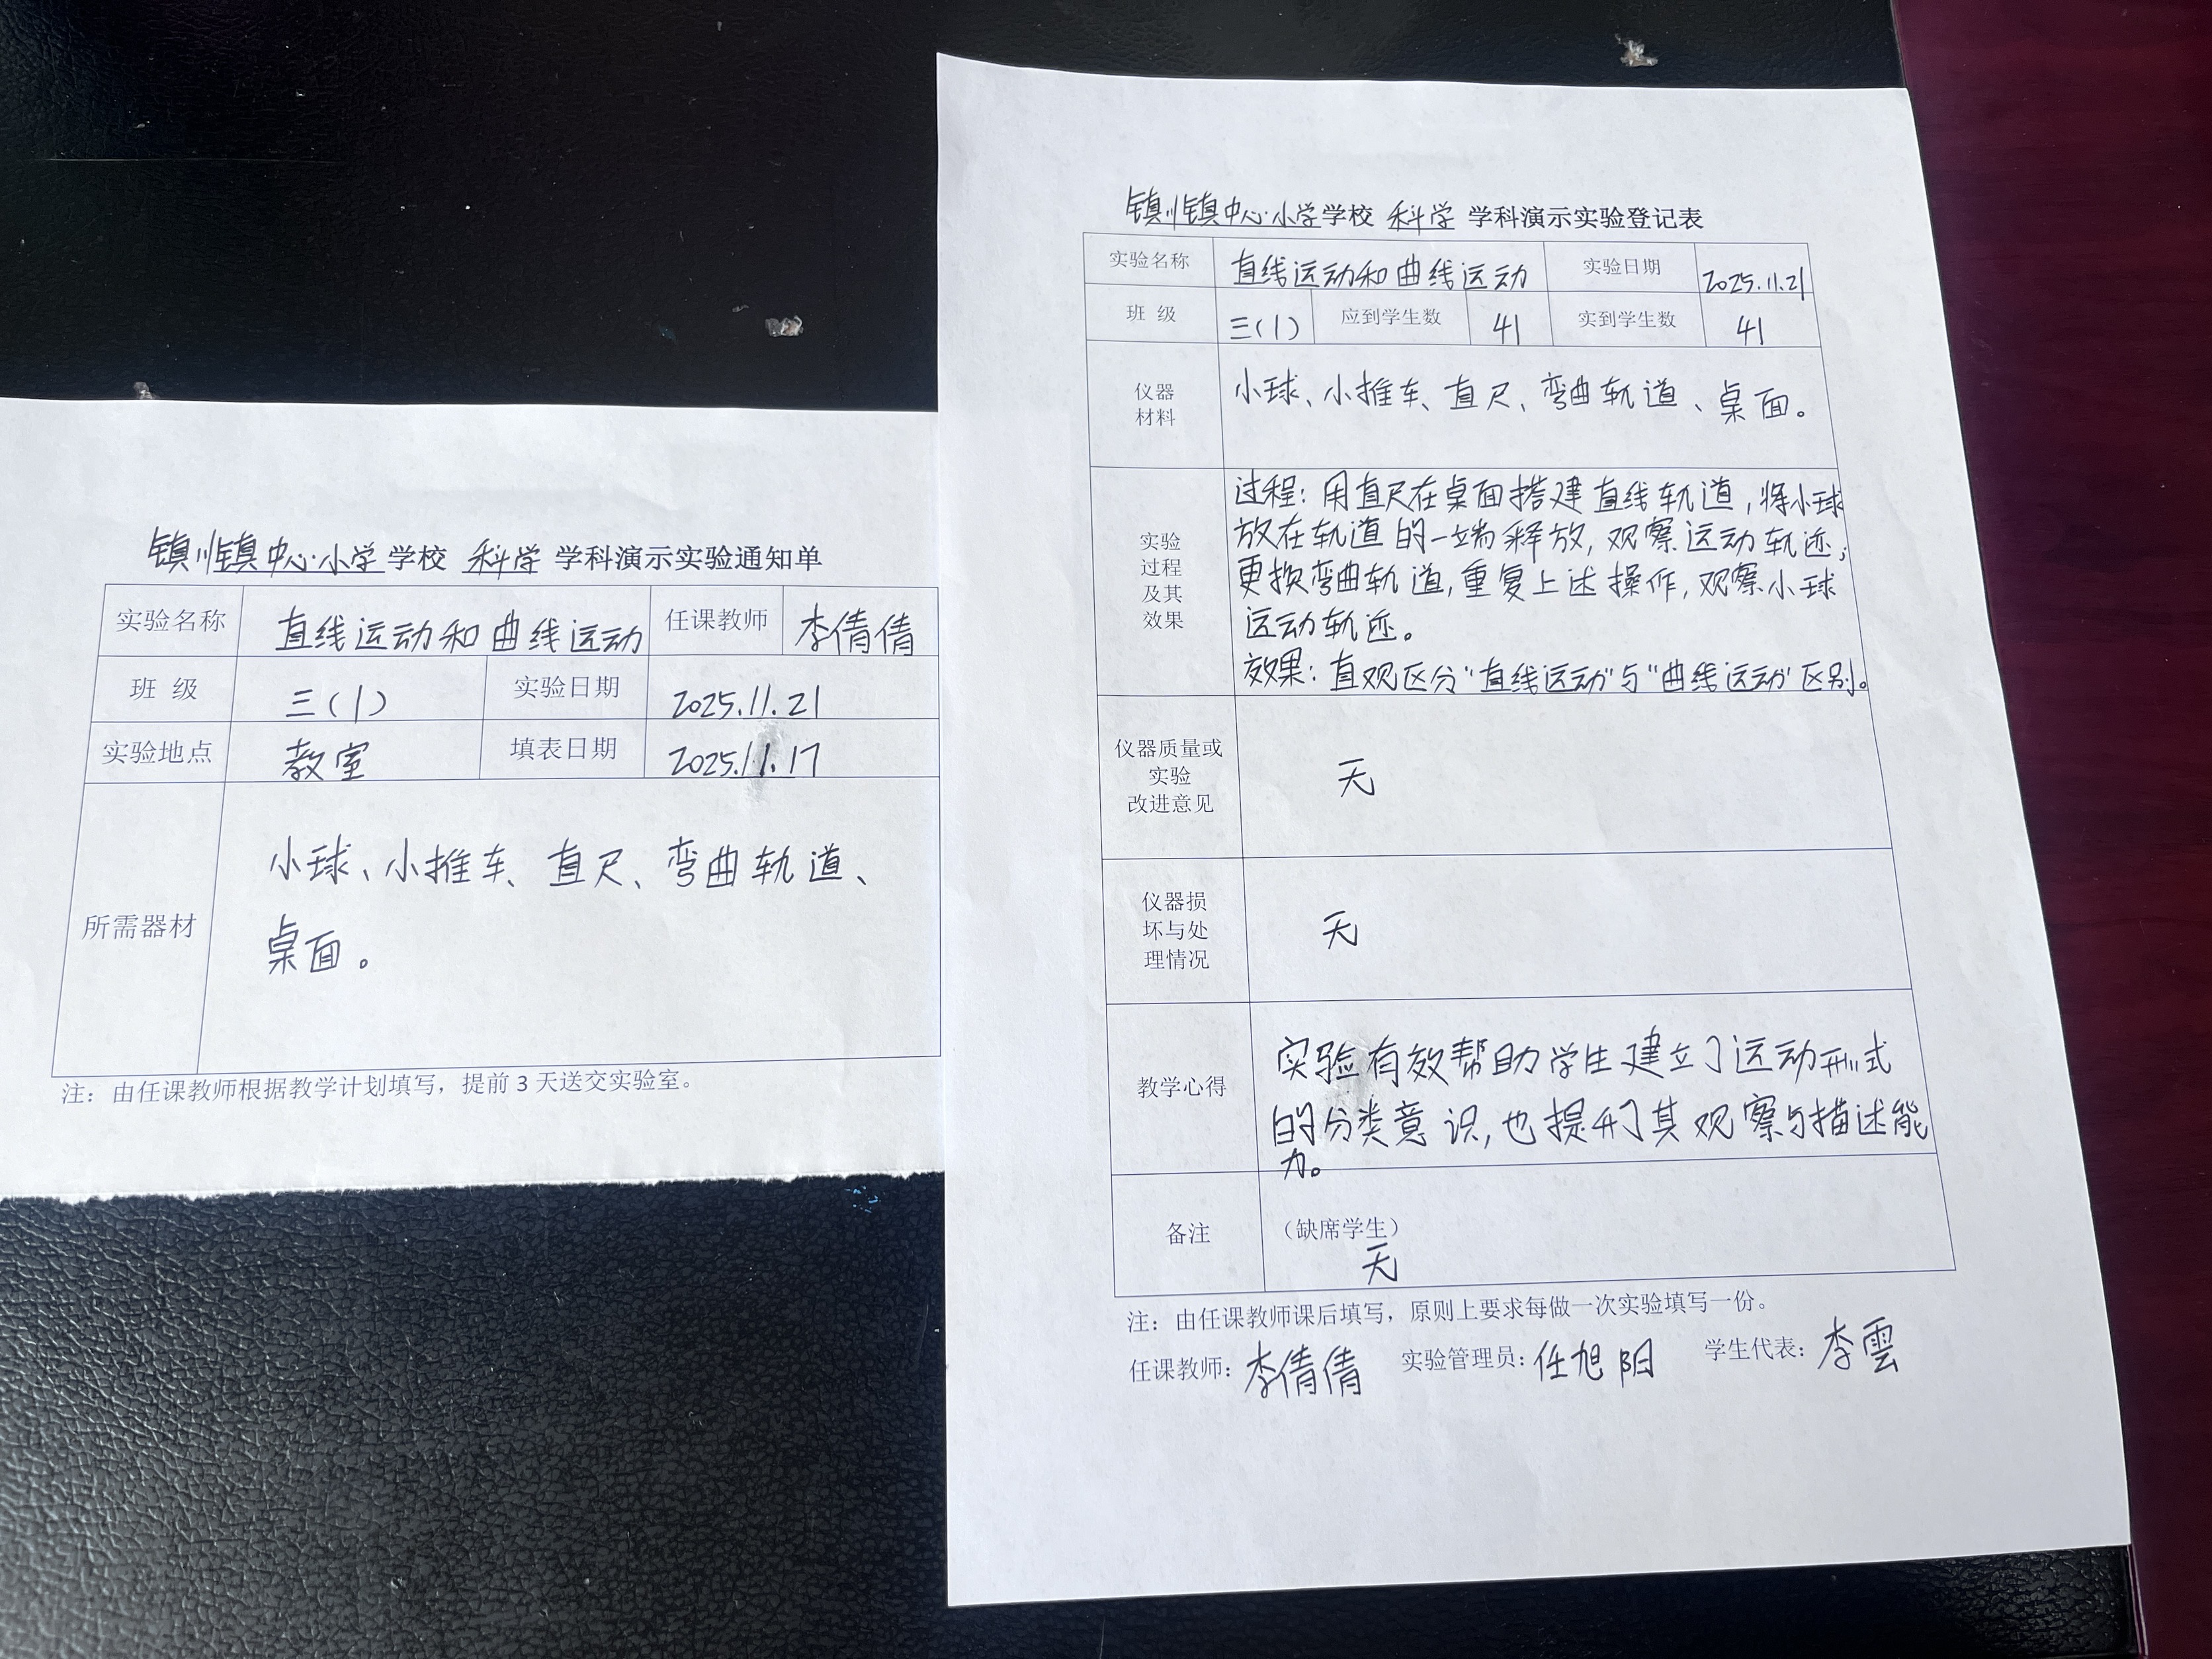 镇川镇中心小学学校 科学 学科演示实验通知单
实验名称 直线运动和曲线运动 任课教师 李倩倩
班 级 三(1) 实验日期 2025.11.21
实验地点 教室 填表日期 2025.11.17
所需器材
小球、小推车、直尺、弯曲轨道、
桌面。
注：由任课教师根据教学计划填写，提前 3 天送交实验室。
镇川镇中心小学学校 科学 学科演示实验登记表
实验名称 直线运动和曲线运动 实验日期 2025.11.21
班 级 三(1) 应到学生数 41 实到学生数 41
仪器
材料
小球、小推车、直尺、弯曲轨道、桌面。
实验
过程
及其
效果
过程：用直尺在桌面搭建直线轨道，将小球
放在轨道的一端释放，观察运动轨迹；
更换弯曲轨道，重复上述操作，观察小球
运动轨迹。
效果：直观区分“直线运动”与“曲线运动”区别。
仪器质量或
实验
改进意见
无
仪器损
坏与处
理情况
无
教学心得
实验有效帮助学生建立了运动形式
的分类意识，也提升了其观察与描述能
力。
备注
（缺席学生）
无
注：由任课教师课后填写，原则上要求每做一次实验填写一份。
任课教师：李倩倩 实验管理员：任旭阳 学生代表：李雲